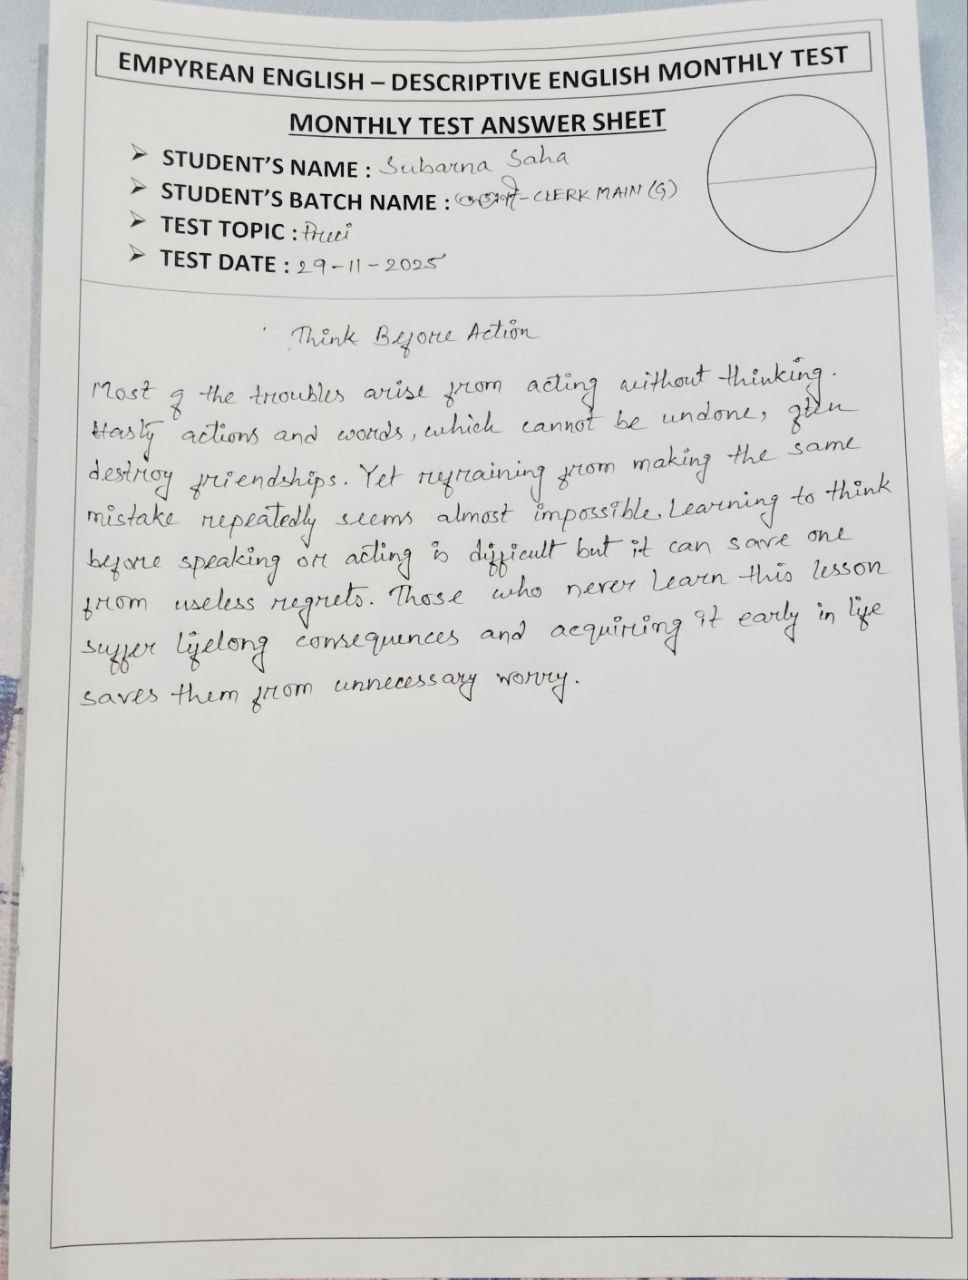 EMPYREAN ENGLISH – DESCRIPTIVE ENGLISH MONTHLY TEST
MONTHLY TEST ANSWER SHEET
➤ STUDENT'S NAME : Subarna Saha
➤ STUDENT'S BATCH NAME : - CLERK MAIN (G)
➤ TEST TOPIC :
➤ TEST DATE : 29-11-2025
Think Before Action
Most of the troubles arise from acting without thinking.
Hasty actions and words, which cannot be undone, often
destroy friendships. Yet refraining from making the same
mistake repeatedly seems almost impossible. Learning to think
before speaking or acting is difficult but it can save one
from useless regrets. Those who never learn this lesson
suffer lifelong consequences and acquiring it early in life
saves them from unnecessary worry.